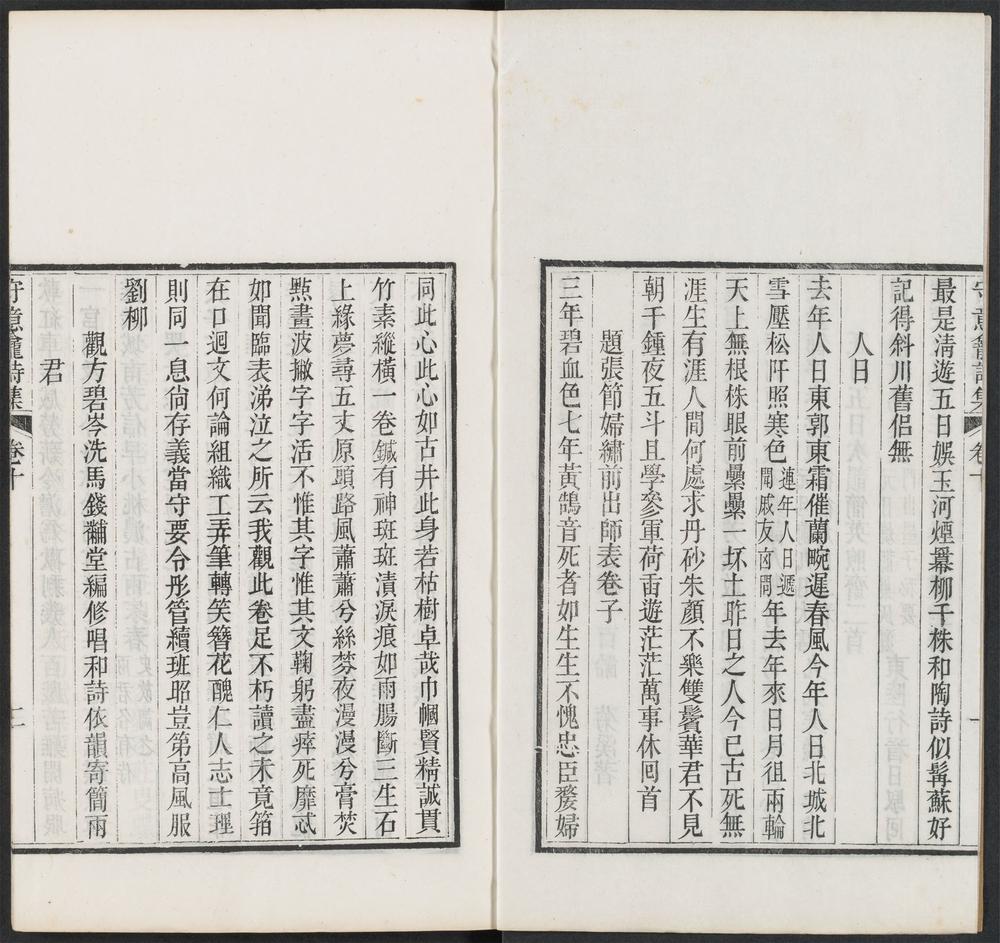 最是清遊五日娛玉河煙羃柳千株和陶詩似髯蘇好
記得斜川舊侶無
人日
去年人日東郭東霜催蘭畹遲春風今年人日北城北
雪壓松阡照寒色
連年人日遞
聞戚友凶問
年去年來日月徂兩輪
天上無根株眼前纍纍一坏土昨日之人今已古死無
涯生有涯人間何處求丹砂朱顏不樂雙鬢華君不見
朝千鍾夜五斗且學參軍荷臿遊茫茫萬事休回首
題張節婦繡前出師表卷子
三年碧血色七年黃鵠音死者如生生不愧忠臣嫠婦
同此心此心如古井此身若枯樹卓哉巾幗賢精誠貫
竹素縱橫一卷鍼有神斑斑漬淚痕如雨腸斷三生石
上緣夢尋五丈原頭路風蕭蕭兮絲棼夜漫漫兮膏焚
㸃畫波撇字字活不惟其字惟其文鞠躬盡瘁死靡忒
如聞臨表涕泣之所云我觀此卷足不朽讀之未竟箝
在口迴文何論組織工弄筆轉笑簪花醜仁人志士理
則同一息尙存義當守要令彤管續班昭豈第高風服
劉柳
觀方碧岑洗馬錢黼堂編修唱和詩依韻寄簡兩
君
守意龕詩集
卷十
二